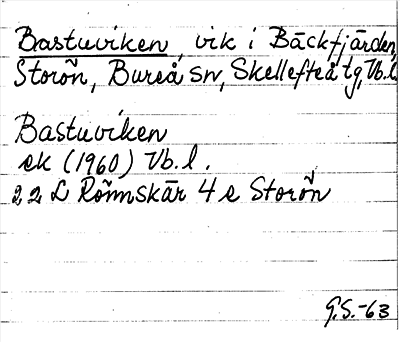 Bastuviken, vik i Bäckfjärden,
Storön, Bureå sn, Skellefteå tg, Vb.l.
Bastuviken
ek (1960) Vb.l.
22 L Rönnskär 4 e Storön
G.S.-63